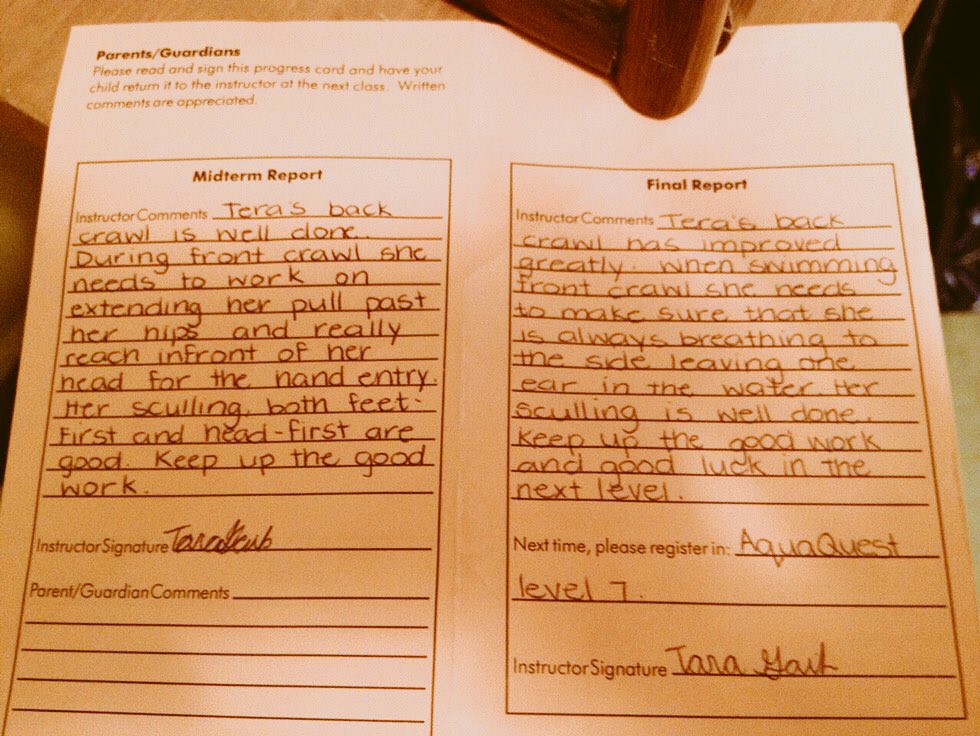 Parents/Guardians
Please read and sign this progress card and have your
child return it to the instructor at the next class. Written
comments are appreciated.
Midterm Report
Instructor Comments Tera's back
crawl is well done.
During front crawl she
needs to work on
extending her pull past
her hips and really
reach infront of her
head for the hand entry.
Her sculling, both feet-
first and head-first are
good. Keep up the good
work.
Instructor Signature Tara
Parent/Guardian Comments
Final Report
Instructor Comments Tera's back
crawl has improved
greatly. When swimming
front crawl she needs
to make sure that she
is always breathing to
the side leaving one
ear in the water. Her
sculling is well done.
Keep up the good work
and good luck in the
next level.
Next time, please register in: AquaQuest
level 7.
Instructor Signature Tara